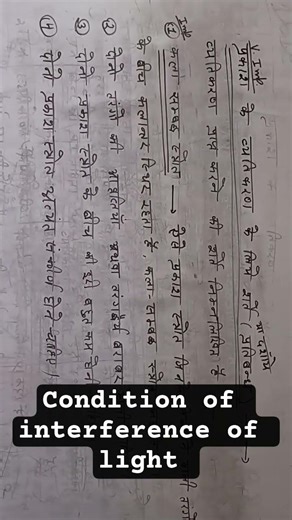 V. Imp
प्रकाश के व्यतिकरण के लिये शर्तें
व्यतिकरण प्राप्त करने की शर्तें निम्नलिखित हैं
Imp
① कला सम्बद्ध स्त्रोत → ऐसे प्रकाश स्त्रोत
के बीच कलान्तर स्थिर रहता है, कला-सम्बद्ध
② दोनों तरंगों की आवृत्तियाँ अथवा तरंगदैर्ध्य बराबर
③ दोनों प्रकाश स्त्रोत के बीच की दूरी बहुत कम
④ दोनों प्रकाश-स्त्रोत अत्यंत संकीर्ण होने चाहिए।
Condition of
interference of
light